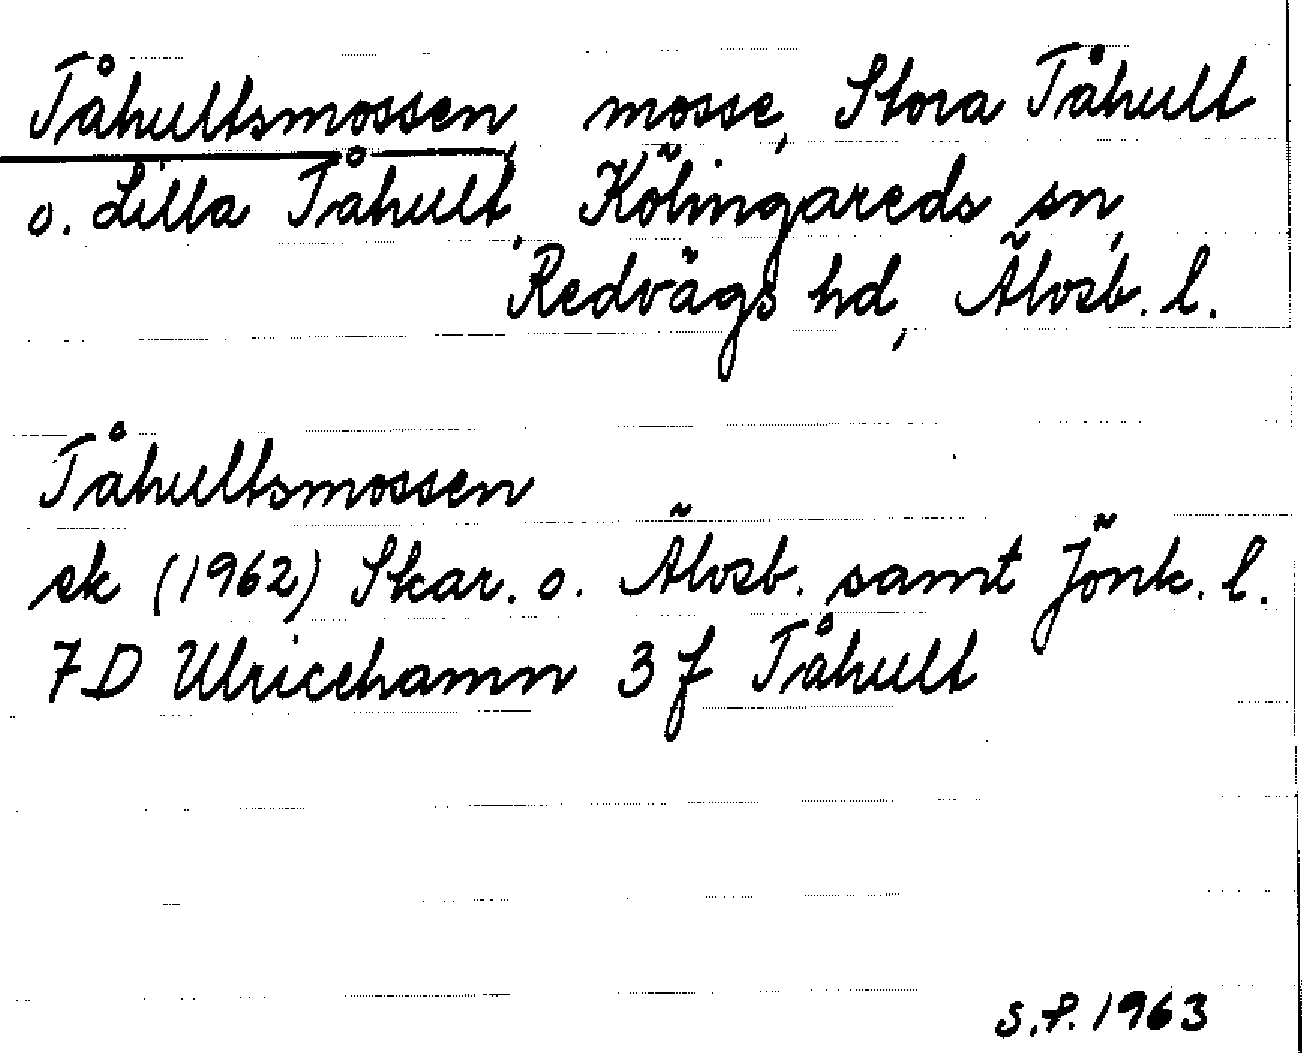 Tåhultsmossen, mosse, Stora Tåhult
o. Lilla Tåhult, Kölingareds sn,
Redvägs hd, Älvsb. l.
Tåhultsmossen
ek (1962) Skar. o. Älvsb. samt Jönk. l.
7D Ulricehamn 3 f Tåhult
S.F. 1963